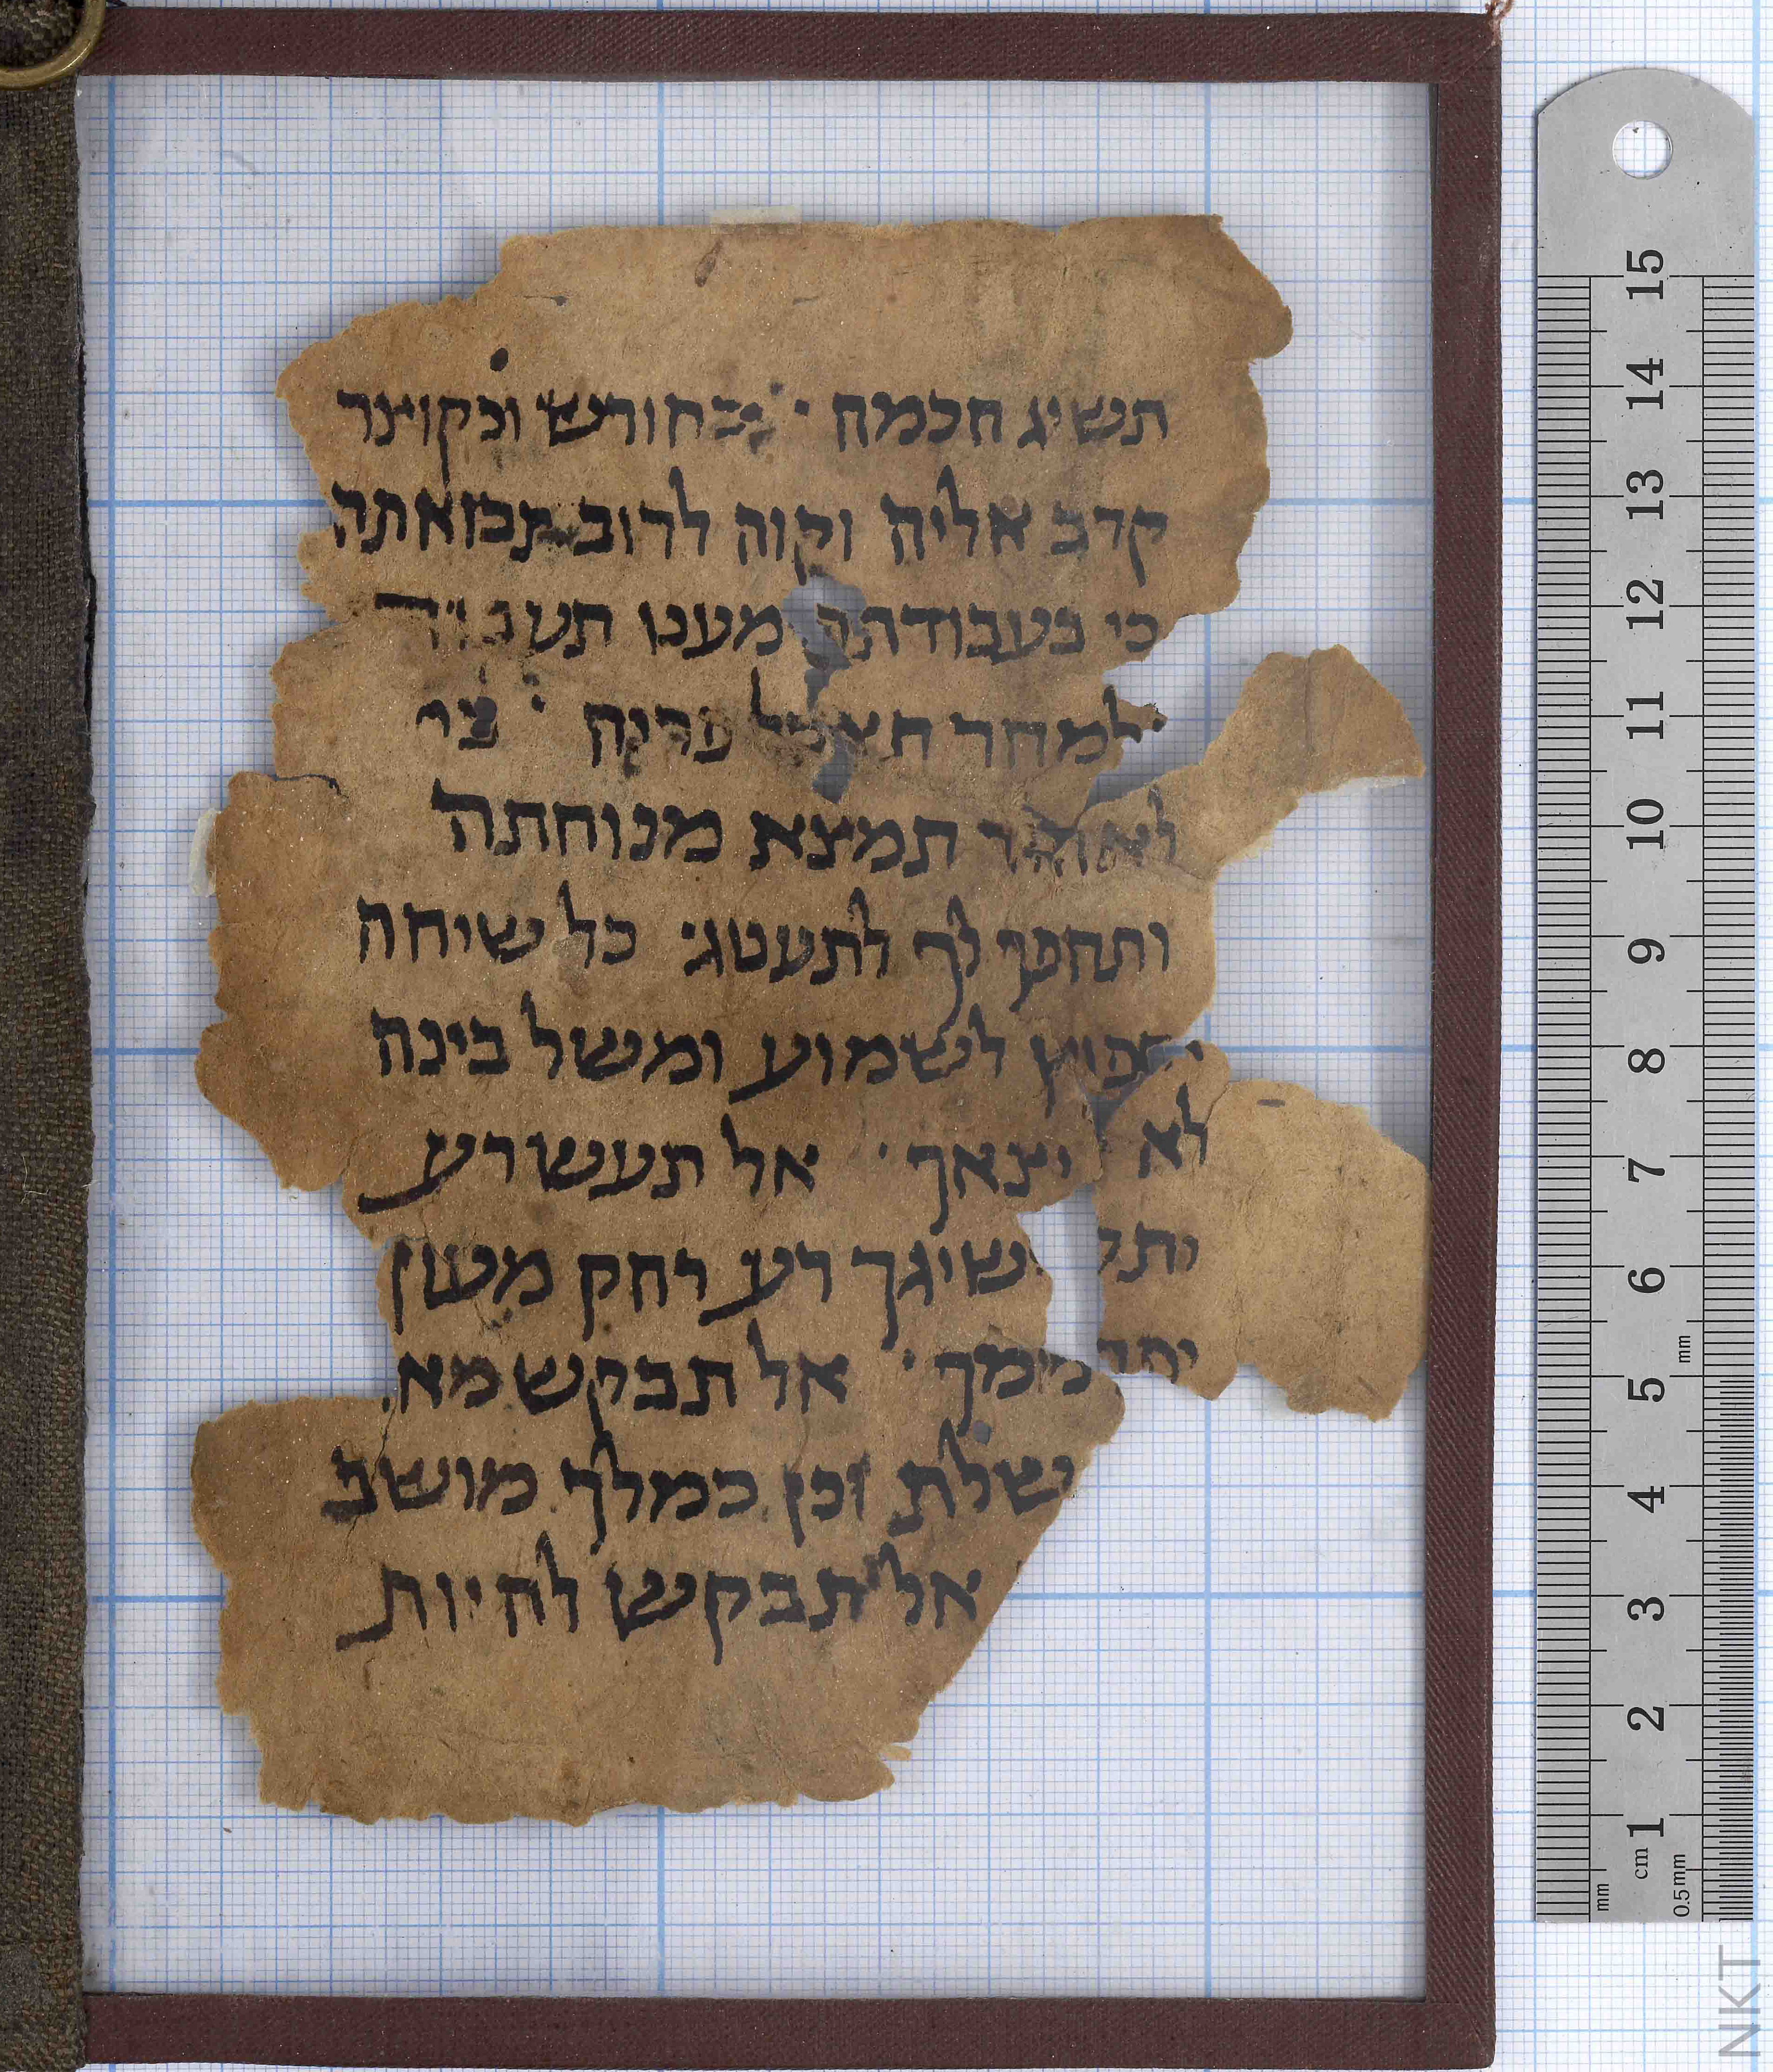 תשיג חכמה · כחורש וכקוצר
קרב אליה וקוה לרוב תבואתה
כי בעבודתה מעט תעבוד
ולמחר תאכל פריה · כי
לאחור תמצא מנוחתה
ותהפך לך לתענוג · כל שיחה
חפוץ לשמוע ומשל בינה
לא יצאך · אל תעש רע
ואל ישיגך רע רחק מעון
ויט ממך · אל תבקש מאל
ממשלת וכן כמלך מושב
אל תבקש להיות
15 14 13 12 11 10 9 8 7 6 5 4 3 2 1
mm cm 0.5 mm
mm
NKT